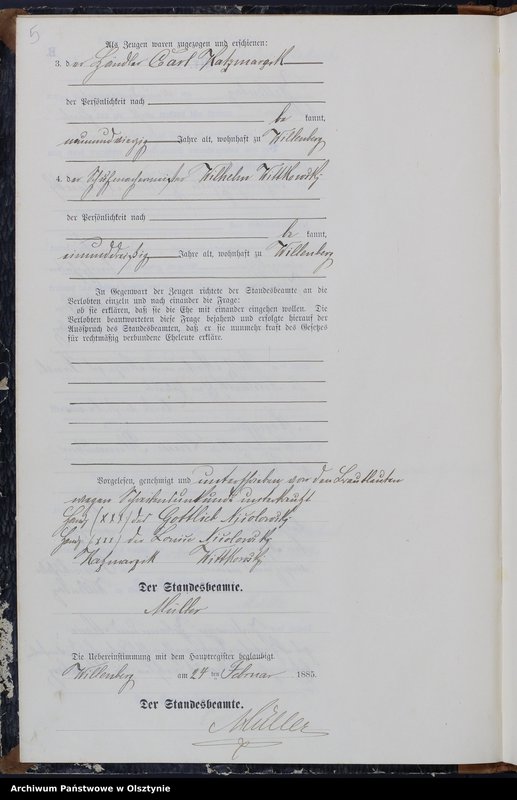 5
Als Zeugen waren zugezogen und erschienen:
3. der Händler Carl Katzmarzik
der Persönlichkeit nach
be kannt,
neunundvierzig Jahre alt, wohnhaft zu Willenberg
4. der Schuhmachermeister Wilhelm Wittkowsky
der Persönlichkeit nach
be kannt,
neununddreißig Jahre alt, wohnhaft zu Willenberg
In Gegenwart der Zeugen richtete der Standesbeamte an die
Verlobten einzeln und nach einander die Frage:
ob sie erklären, daß sie die Ehe mit einander eingehen wollen. Die
Verlobten beantworteten diese Frage bejahend und erfolgte hierauf der
Ausspruch des Standesbeamten, daß er sie nunmehr kraft des Gesetzes
für rechtmäßig verbundene Eheleute erkläre.
Vorgelesen, genehmigt und unterschrieben von den Brautleuten
wegen Schreibensunkunde unterkreuzt
Hdz (XXX) des Gottlieb
Hdz (XXX) der Louise
Katzmarzik Wittkowsky
Der Standesbeamte.
Müller
Die Uebereinstimmung mit dem Hauptregister beglaubigt.
Willenberg am 24 ten Februar 1885.
Der Standesbeamte.
Müller
Archiwum Państwowe w Olsztynie